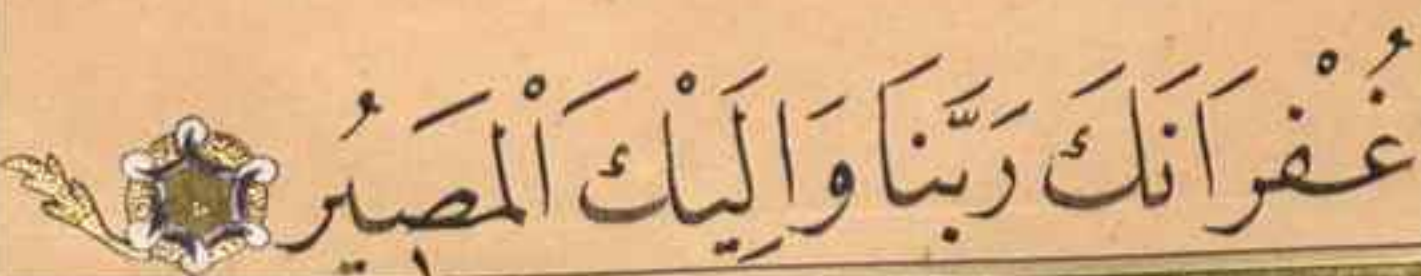 غُفْرَانَكَ رَبَّنَا وَاِلَيْكَ الْمَصَيُر